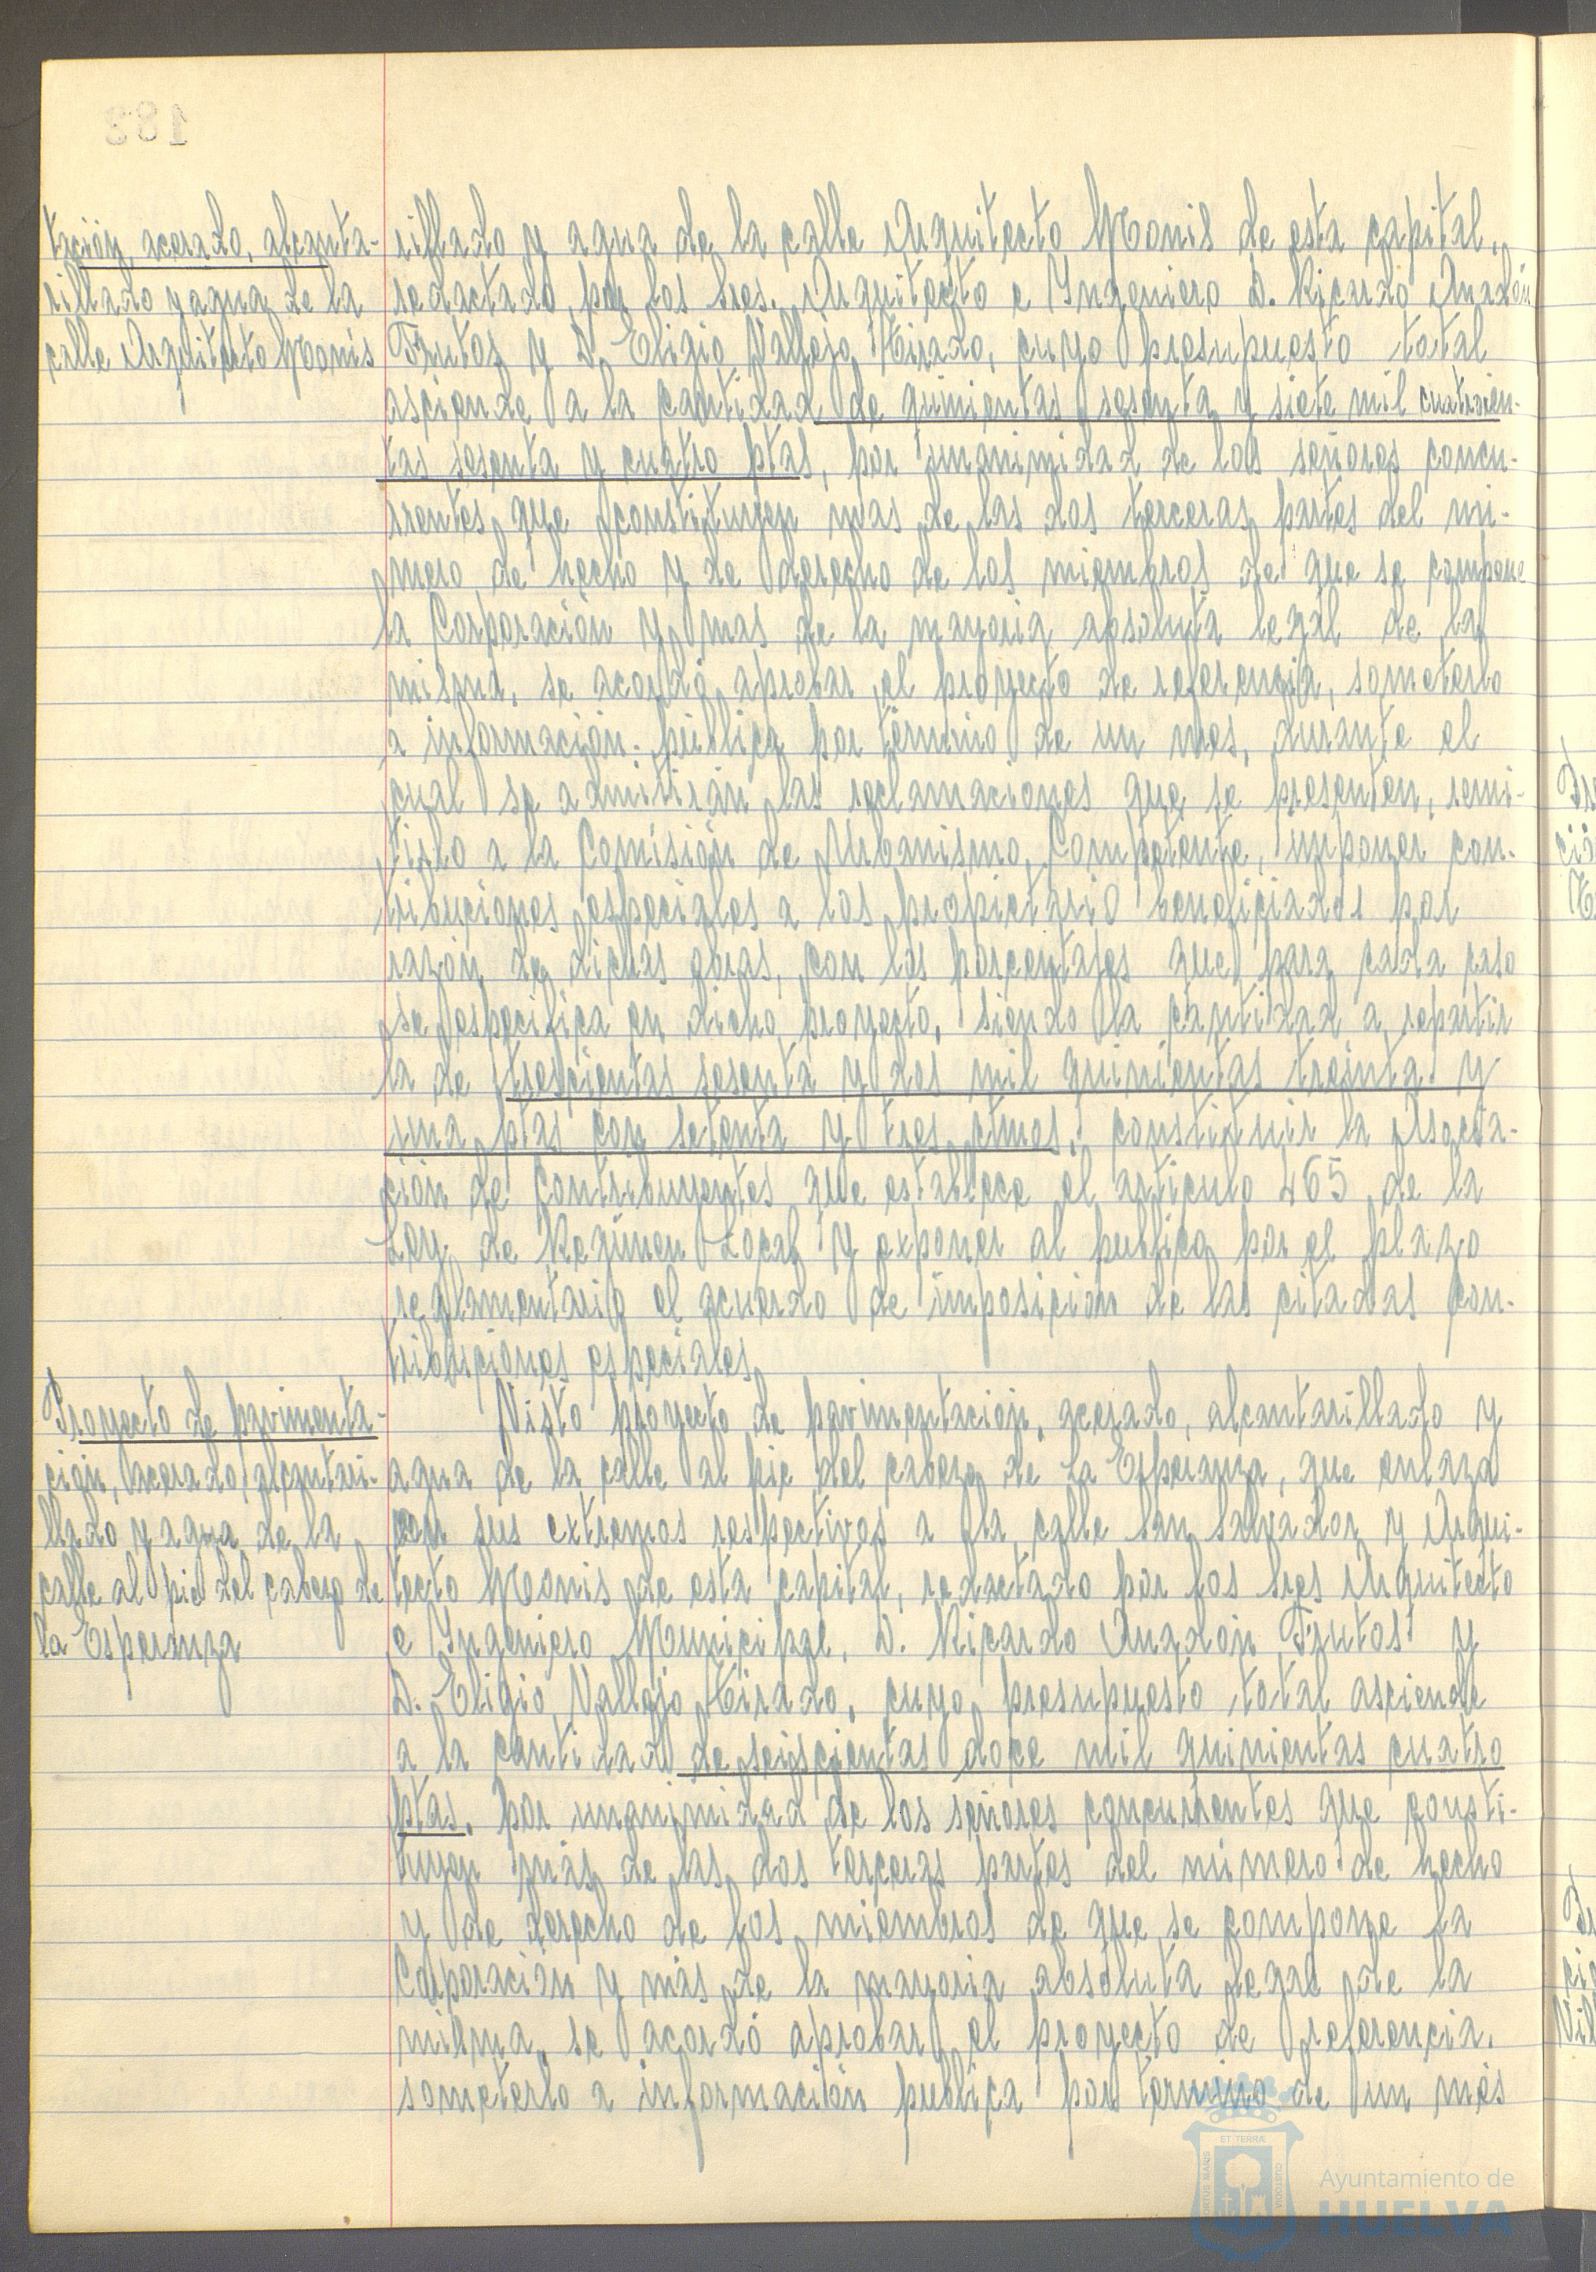 tación, acerado, alcanta-
rillado y agua de la
calle Arquitecto Monis
rillado y agua de la calle Arquitecto Monis de esta capital,
redactado por los sres. Arquitecto e Yngeniero D. Ricardo Anadón
Frutos y D. Eligio Vallejo Hirado, cuyo presupuesto total
asciende a la cantidad de quinientas sesenta y siete mil cuatrocien-
tas sesenta y cuatro ptas, por unanimidad de los señores concu-
rrentes que constituyen mas de las dos terceras partes del nú-
mero de hecho y de derecho de los miembros de que se compone
la Corporación y mas de la mayoria absoluta legal de la
misma, se acordó aprobar el proyecto de referencia, someterlo
a información pública por término de un mes, durante el
cual se admitirán las reclamaciones que se presenten, remi-
tirlo a la Comisión de Urbanismo, Competente, imponer con-
tribuciones especiales a los propietario beneficiados por
razón de dichas obras, con los porcentajes que para cada caso
se especifica en dicho proyecto, siendo la cantidad a repartir
la de trescientas sesenta y dos mil quinientas treinta y
una ptas con setenta y tres ctmos, constituir la Asocia-
ción de Contribuyentes que establece el articulo 465 de la
Ley de Regimen Local y exponer al publico por el plazo
reglamentario el acuerdo de imposición de las citadas con-
tribuciones especiales.
Proyecto de pavimenta-
ción, acerado, alcantari-
llado y agua de la
calle al pie del cabezo de
la Esperanza
Visto proyecto de pavimentación, acerado, alcantarillado y
agua de la calle al pie del cabezo de La Esperanza, que enlaza
con sus extremos respectivos a la calle San Salvador y Arqui-
tecto Monis de esta capital, redactado por los sres Arquitecto
e Yngeniero Municipal, D. Ricardo Anadón Frutos y
D. Eligio Vallejo Hirado, cuyo presupuesto total asciende
a la cantidad de seiscientas doce mil quinientas cuatro
ptas, por unanimidad de los señores concurrentes que consti-
tuyen más de las dos terceras partes del número de hecho
y de derecho de los miembros de que se compone la
Corporación y más de la mayoria absoluta legal de la
misma, se acordó aprobar el proyecto de referencia,
someterlo a información publica por termino de un mes
Ayuntamiento de
HUELVA